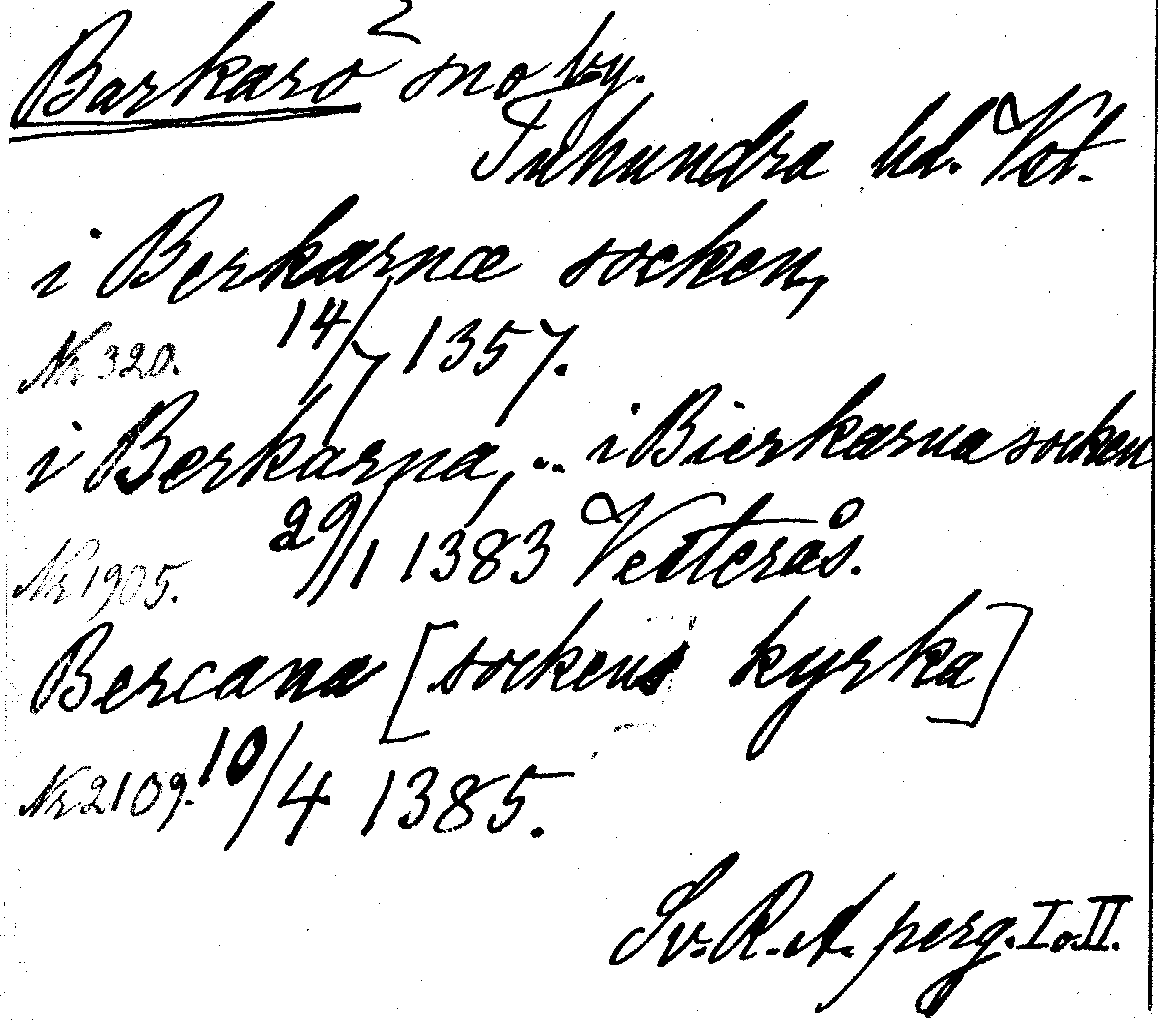 Barkarö 2 sn o by.
Tuhundra hd. Vst.
i Berkarnæ socken,
Nr 320. 14/7 1357.
i Berkarna, .. i Bierkarna socken
Nr 1905. 29/1 1383 Vesterås.
Bercana [sockens kyrka]
Nr 2109. 10/4 1385.
Sv. R. A. perg. I o. II.